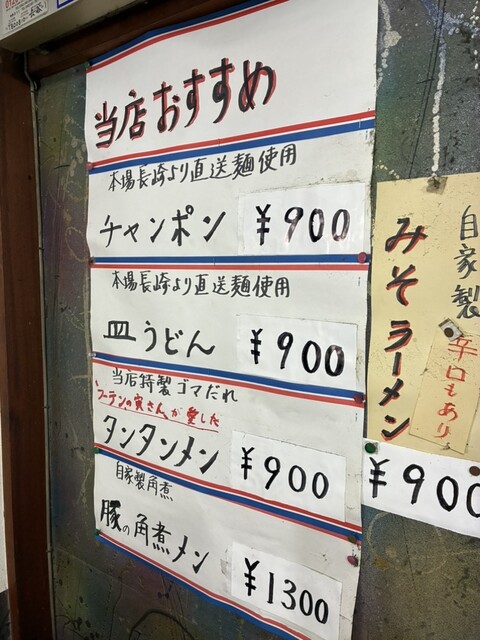 当店おすすめ
本場長崎より直送麺使用
チャンポン ¥900
本場長崎より直送麺使用
皿うどん ¥900
当店特製ゴマだれ
フーテンの寅さんが愛した
タンタンメン ¥900
自家製角煮
豚の角煮メン ¥1300
自家製
みそラーメン
辛口もあり
¥900